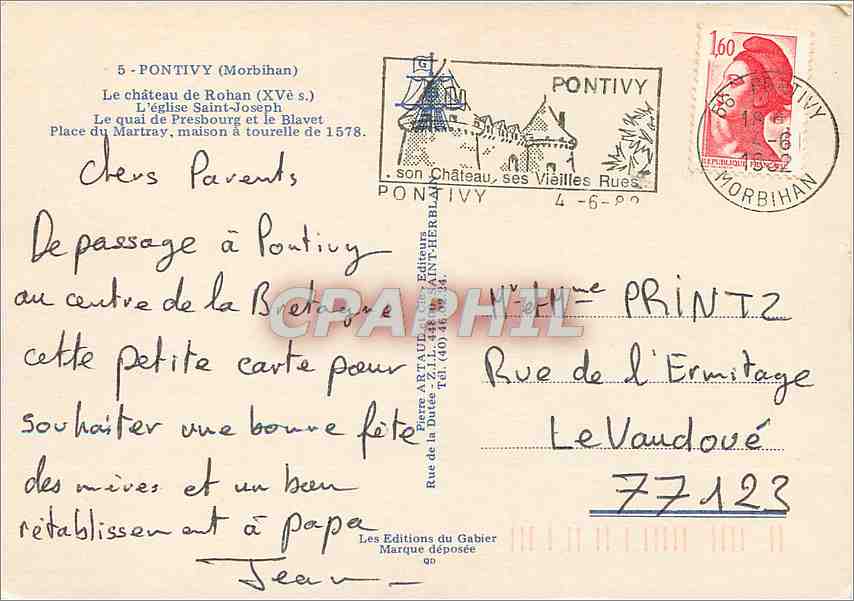 5 - PONTIVY (Morbihan)
Le château de Rohan (XVè s.)
L'église Saint-Joseph
Le quai de Presbourg et le Blavet
Place du Martray, maison à tourelle de 1578.
Chers Parents
De passage à Pontivy
au centre de la Bretagne
cette petite carte pour
souhaiter une bonne fête
des mères et un bon
rétablissement à papa
Jean
G
PONTIVY
son Château, ses Vieilles Rues
PONTIVY 4 -6-82
1,60
REPUBLIQUE FRANÇAISE
PONTIVY
MORBIHAN
Pierre ARTAUD et Cie, Editeurs
Rue de la Dutée - Z.I.L. 44800 SAINT-HERBLAIN
Tél. (40) 46.02.24.
CPAPHIL
Mr et Mme PRINTZ
Rue de l'Ermitage
Le Vaudoué
77123
Les Editions du Gabier
Marque déposée